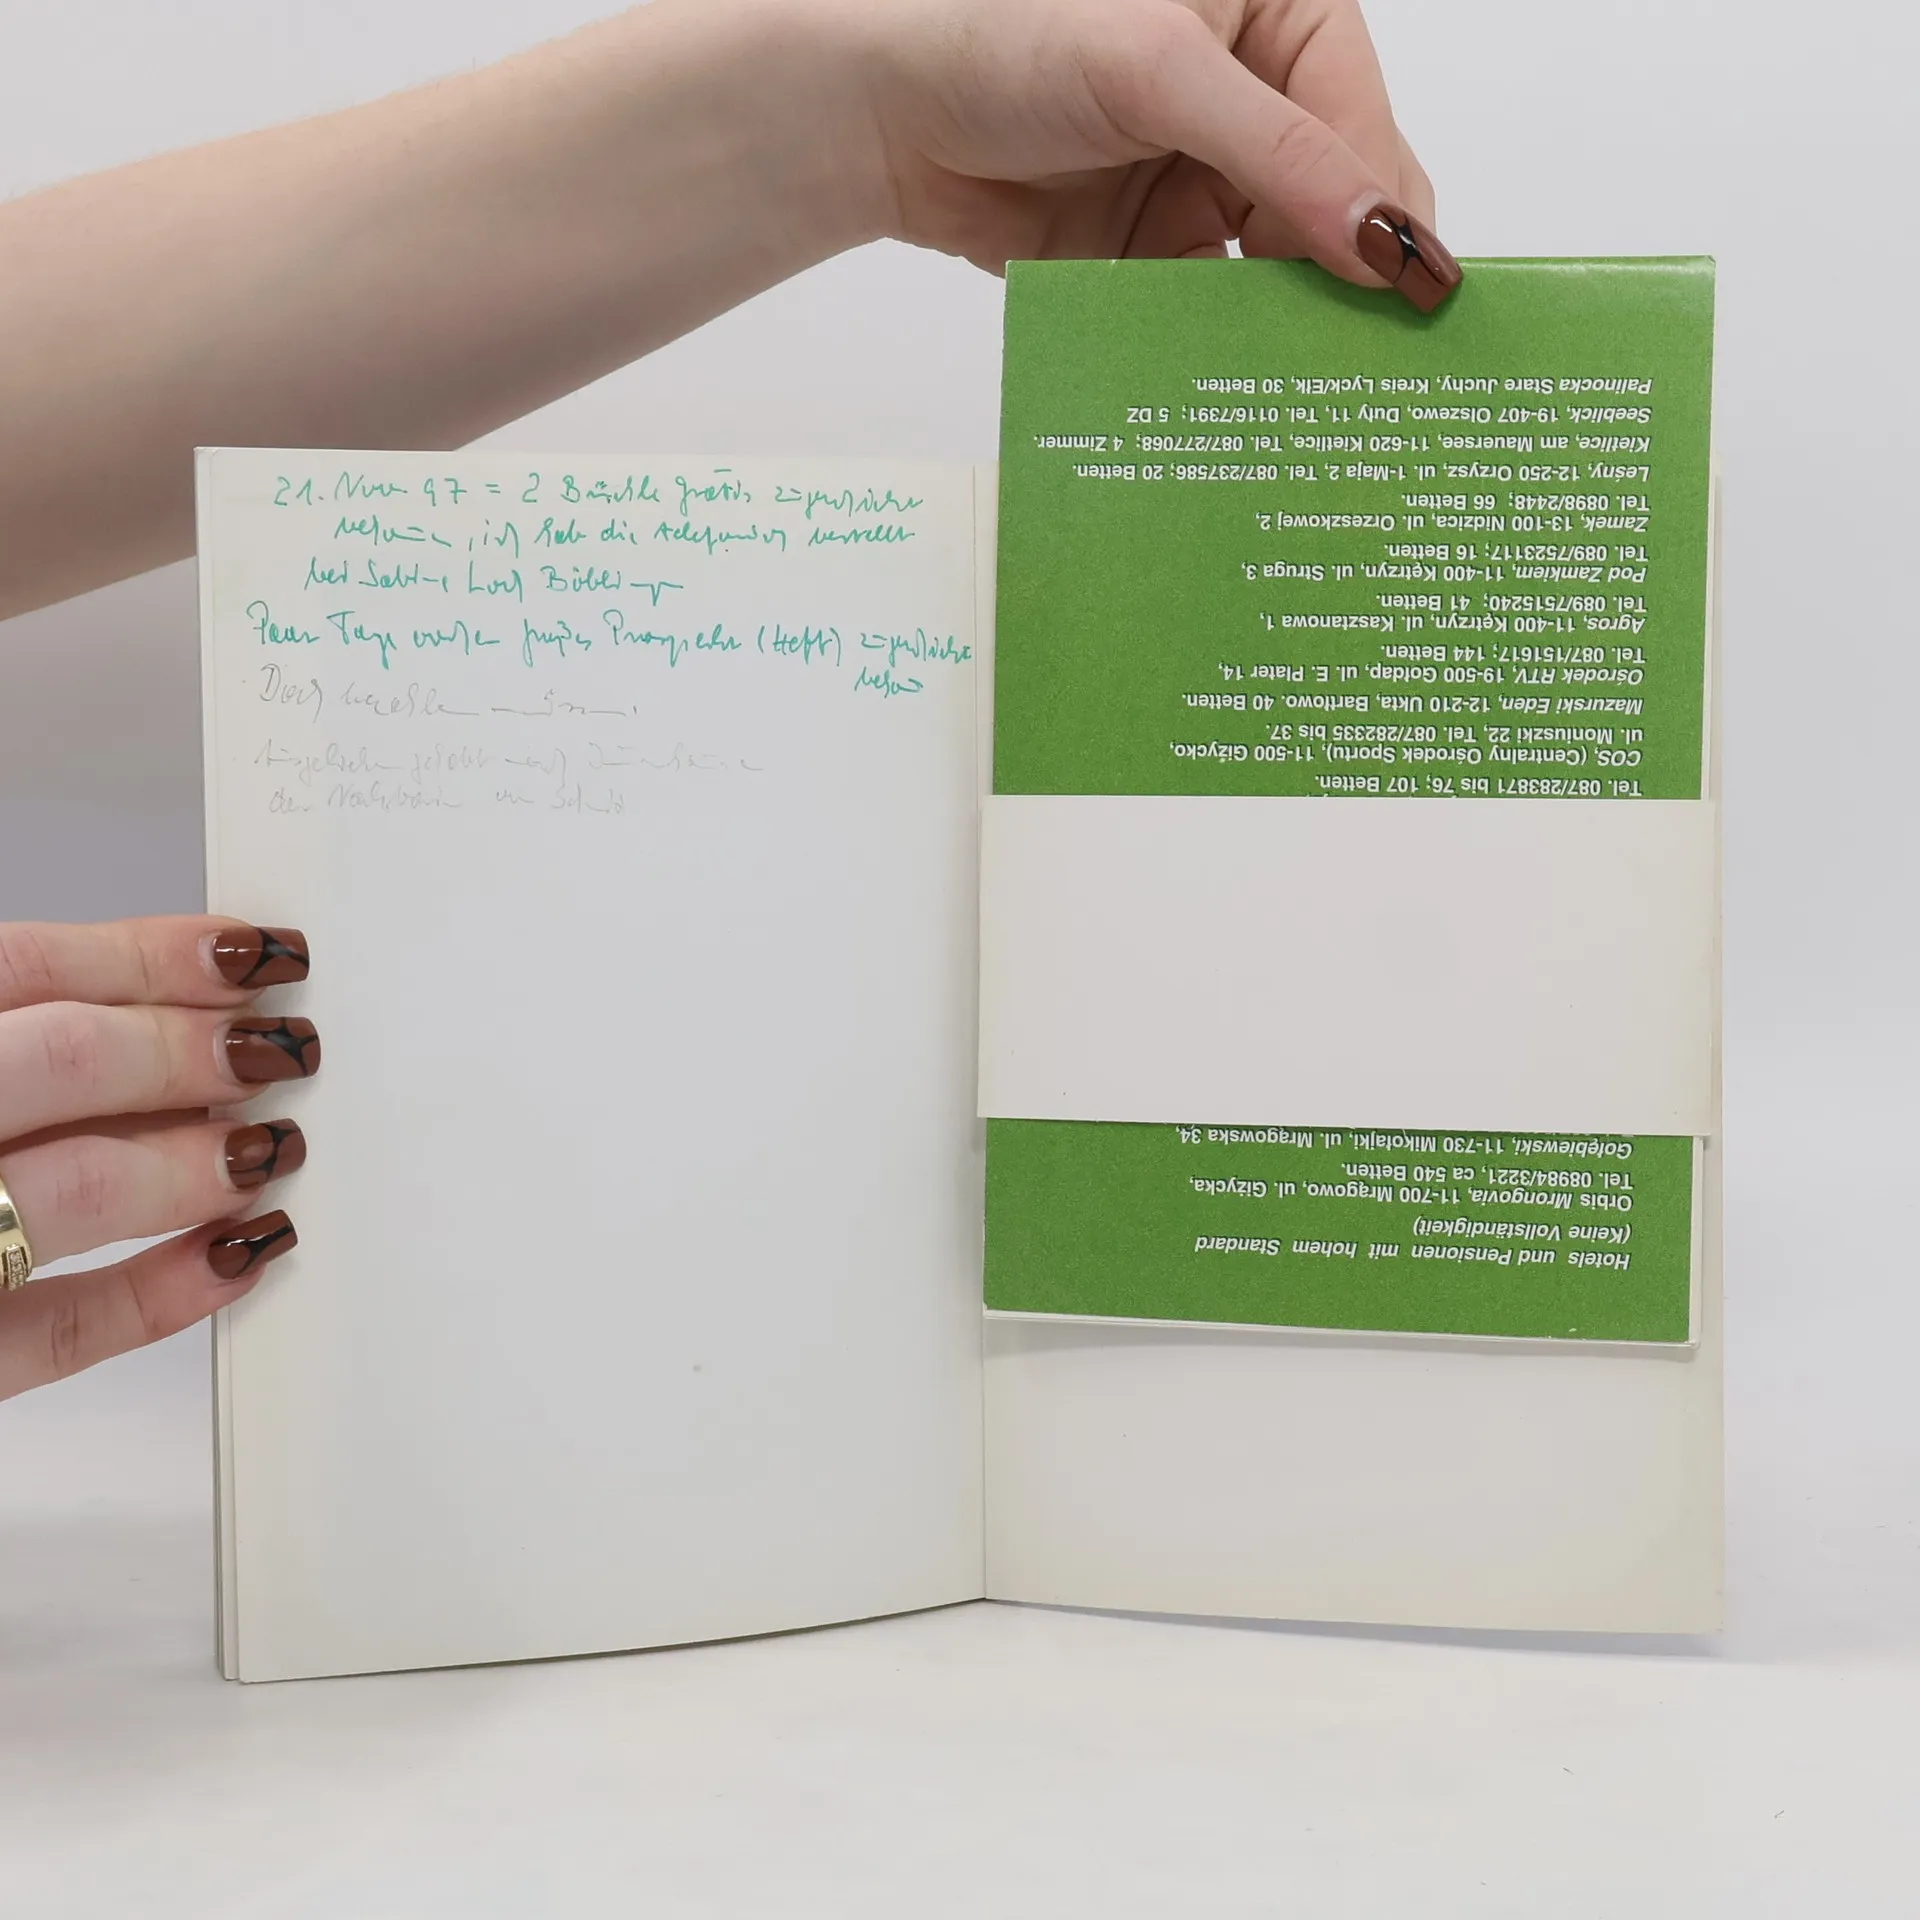 21. Nov 97 = 2 Büchle gratis zugeschickt
bekommen, ich hab die telefonisch bestellt
bei Sabine Loch Böblingen
Paar Tage vorher großes Prospekt (Heft) zugeschickt
bekommen
Doch
der Nachbarin
Hotels und Pensionen mit hohem Standard
(Keine Vollständigkeit)
Orbis Mrongovia, 11-700 Mrągowo, ul. Giżycka,
Tel. 08984/3221, ca 540 Betten.
Gołębiewski, 11-730 Mikołajki, ul. Mrągowska 34,
Tel. 087/283871 bis 76; 107 Betten.
COS, (Centralny Ośrodek Sportu), 11-500 Giżycko,
ul. Moniuszki 22, Tel. 087/282335 bis 37.
Mazurski Eden, 12-210 Ukta, Bartłowo. 40 Betten.
Ośrodek RTV, 19-500 Gołdap, ul. E. Plater 14,
Tel. 087/151617; 144 Betten.
Agros, 11-400 Kętrzyn, ul. Kasztanowa 1,
Tel. 089/7515240; 41 Betten.
Pod Zamkiem, 11-400 Kętrzyn, ul. Struga 3,
Tel. 089/7523117; 16 Betten.
Zamek, 13-100 Nidzica, ul. Orzeszkowej 2,
Tel. 0898/2448; 66 Betten.
Leśny, 12-250 Orzysz, ul. 1-Maja 2, Tel. 087/237586; 20 Betten.
Kietlice, am Mauersee, 11-620 Kietlice, Tel. 087/277068; 4 Zimmer.
Seeblick, 19-407 Olszewo, Duty 11, Tel. 0116/7391; 5 DZ
Palinocka Stare Juchy, Kreis Lyck/Ełk, 30 Betten.